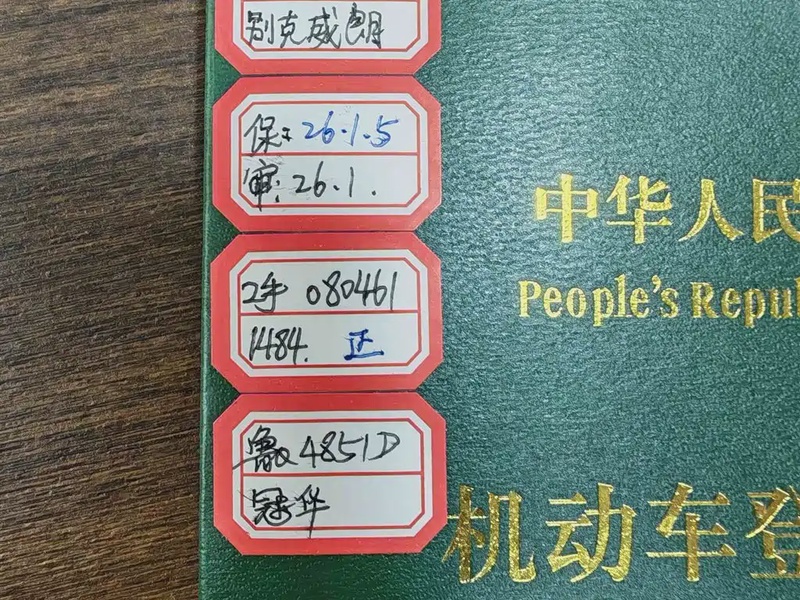 别克威朗
保: 26.1.5
审: 26.1.
2手 080461
1484. 正
4851D
冠华
中华人民
People's Repu
机动车登